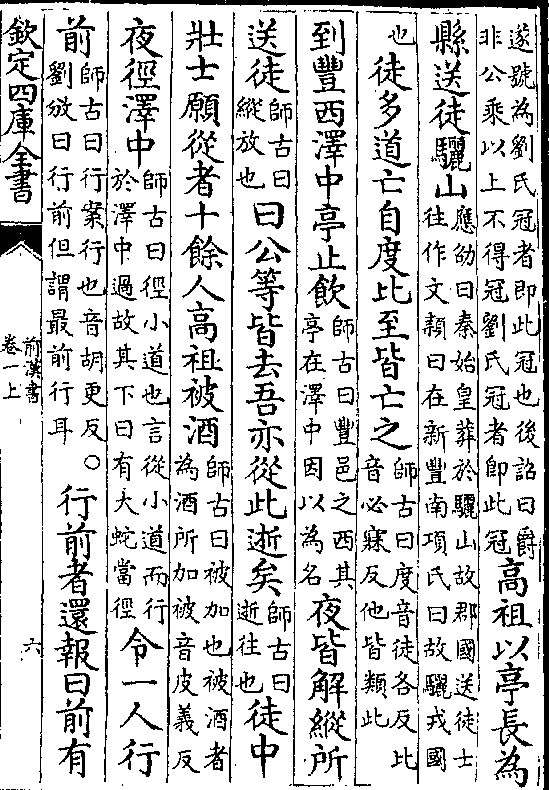 遂號為劉氏冠者即此冠也後詔曰爵非公乘以上不得冠劉氏冠者即此冠高祖以亭長為
縣送徒驪山應劭曰秦始皇葬於驪山故郡國送徒士往作文頴曰在新豐南項氏曰故驪戎國
也徒多道亡自度比至皆亡之師古曰度音徒各反比音必寐反他皆類此
到豐西澤中亭止飲師古曰豐邑之西其亭在澤中因以為名夜皆解縱所
送徒師古曰縱放也曰公等皆去吾亦從此逝矣師古曰逝往也徒中
壯士願從者十餘人高祖被酒師古曰被加也被酒者為酒所加被音皮義反
夜徑澤中師古曰徑小道也言從小道而行於澤中過故其下曰有大蛇當徑令一人行
前師古曰行案行也音胡更反○劉攽曰行前但謂最前行耳行前者還報曰前有
欽定四庫全書
前漢書
卷一上
六